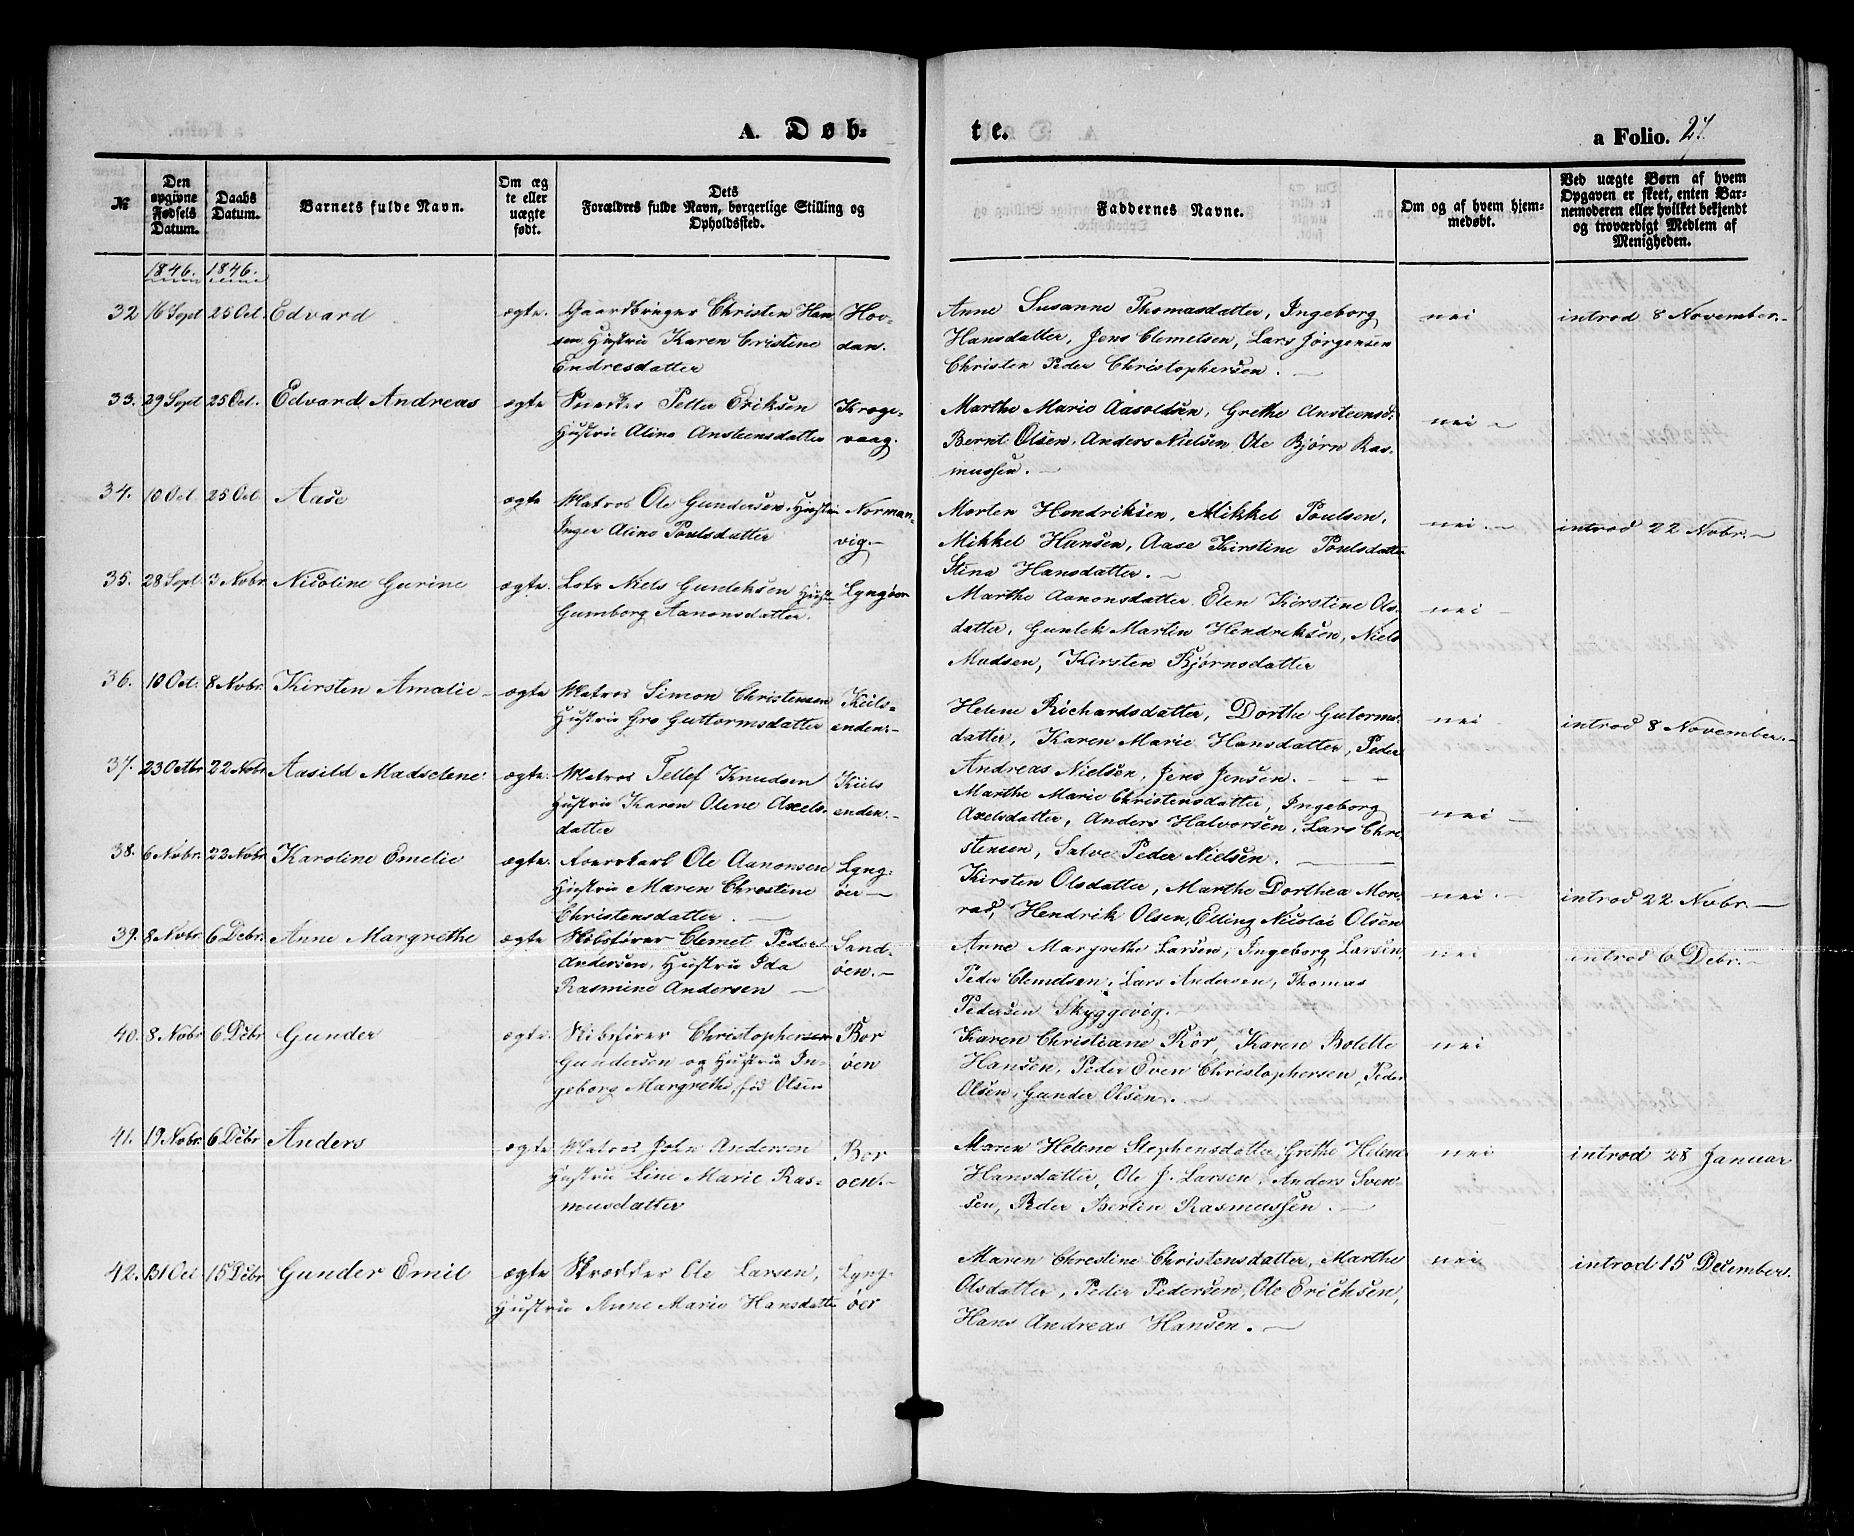 A. Døb=
te.
a Folio. 27.
№
Den opgivne Fødsels Datum.
Daabs Datum.
Barnets fulde Navn.
Om ægte eller uægte født.
Dets Forældres fulde Navn, borgerlige Stilling og Opholdssted.
Faddernes Navne.
Om og af hvem hjemmedøbt.
Ved uægte Børn af hvem Opgaven er skeet, enten Barnemoderen eller hvilket bekjendt og troværdigt Medlem af Menigheden.
1846. 1846.
32 16 Sept 25 Oct. Edvard ægte. Gaardbruger Christen Han Hov-
sen Hustrue Karen Cristine dan.
Endresdatter
Anne Susanne Thomasdatter, Ingeborg nei introd 8 November.
Hansdatter, Jens Clemetsen, Lars Jørgensen
Christen Peder Christophersen.
33. 29 Sept 25 Oct. Edvard Andreas ægte Petter Eriksen Krage-
Hustrue Aline Ansteensdatter vaag.
Marthe Marie Aasoldsen, Grethe Ansteensd. nei
Bernt Olsen, Anders Nielsen Ole Bjørn Ras-
mussen.
34. 10 Oct 25 Oct Aase ægte Matros Ole Gundersen, Hustru Norman-
Inger Aline Poulsdatter vig.
Morten Hendriksen, Mikkel Poulsen, nei. introd 22 Nobr.
Mikkel Hansen, Aase Kirstine Poulsdatter
Stina Hansdatter.
35. 28 Sept. 3 Nobr. Nicoline Gurine ægte. Lots Niels Gunleksen Hust Lyngøer
Gumborg Aanonsdatter.
Marthe Aanonsdatter, Elen Kirstine Ols- nei
datter, Gunlek Martin Hendriksen, Niels
Madsen, Kirsten Bjørnsdatter
36. 10 Oct. 8 Nobr. Kirsten Amalie ægte Matros Simon Christensen Kiils-
Hustrue Gro Guttormsdatter enden.
Helene Richardsdatter, Dorthe Gutorms- nei introd 8 November.
datter, Karen Marie Hansdatter, Peder
Andreas Nielsen, Jens Jensen.
37. 23 Octbr 22 Nobr. Aasild Madselene ægte. Matros Tellef Knudsen Kiils
Hustrue Karen Oline Axels- enden.
datter
Marthe Marie Christensdatter, Ingeborg nei
Axelsdatter, Anders Halvorsen, Lars Chri-
stensen, Salve Peder Nielsen.
38. 6 Nobr. 22 Nobr. Karoline Emelie ægte. Ole Aanonsen Lyng-
Hustrue Maren Christine øer
Christensdatter.
Kirsten Olsdatter, Marthe Dorthea Mon- nei. introd 22 Nobr.
rad, Hendrik Olsen, Elling Nicolai Olsen
39. 8 Nobr. 6 Debr. Anne Margrethe ægte Skibsfører Clemet Peder Sand-
Andersen, Hustru Ida øen.
Rasmine Andersen
Anne Margrethe Larsen, Ingeborg Larsen, nei introd 6 Debr.
Peder Clemetsen, Lars Andersen, Thomas
Pedersen Skyggevig.
40. 8 Nobr 6 Debr Gunder ægte. Skibsfører Christophersen Bor
Gundersen og Hustru In- øen
geborg Margrethe, fød Olsen
Karen Christiane Rör, Karen Bolette nei
Hansen, Peder Even Christophersen, Peder
Olsen, Gunder Olsen.
41. 19 Nobr. 6 Debr Anders ægte Matros John Andersen Bor
Hustrue Line Marie Ras- øen.
musdatter
Maren Helene Stephensdatter, Grethe Helene nei introd 28 Januar
Hansdatter, Ole J. Larsen, Anders Sven-
sen, Peder Bertin Rasmussen.
42. 31 Oct 15 Debr Gunder Emil ægte Skrædder Ole Larsen, Lyng-
Hustrue Anne Marie Hansdatter øer
Maren Christine Christensdatter, Marthe nei introd 15 December.
Olsdatter, Peder Pedersen, Ole Erichsen,
Hans Andreas Hansen.